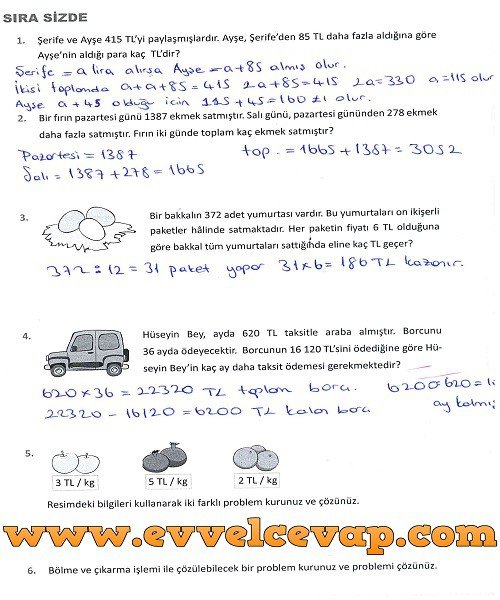 SIRA SİZDE
1. Şerife ve Ayşe 415 TL'yi paylaşmışlardır. Ayşe, Şerife'den 85 TL daha fazla aldığına göre
Ayşe'nin aldığı para kaç TL'dir?
Şerife = a lira alırsa Ayşe = a+85 almış olur.
İkisi toplamda a+a+85 = 415 2a+85=415 2a=330 a=115 olur
Ayşe a+45 olduğu için 115+45=160 tl olur.
2. Bir fırın pazartesi günü 1387 ekmek satmıştır. Salı günü, pazartesi gününden 278 ekmek
daha fazla satmıştır. Fırın iki günde toplam kaç ekmek satmıştır?
Pazartesi = 1387 top. = 1665 + 1387 = 3052
Salı = 1387 + 278 = 1665
3. Bir bakkalın 372 adet yumurtası vardır. Bu yumurtaları on ikişerli
paketler hâlinde satmaktadır. Her paketin fiyatı 6 TL olduğuna
göre bakkal tüm yumurtaları sattığında eline kaç TL geçer?
372 : 12 = 31 paket yapar 31x6 = 186 TL kazanır.
4. Hüseyin Bey, ayda 620 TL taksitle araba almıştır. Borcunu
36 ayda ödeyecektir. Borcunun 16 120 TL'sini ödediğine göre Hü-
seyin Bey'in kaç ay daha taksit ödemesi gerekmektedir?
620 x 36 = 22320 TL toplam borcu. 6200:620=1
22320 - 16120 = 6200 TL kalan borcu ay kalmış
5.
3 TL / kg 5 TL / kg 2 TL / kg
Resimdeki bilgileri kullanarak iki farklı problem kurunuz ve çözünüz.
www.evvelcevap.com
6. Bölme ve çıkarma işlemi ile çözülebilecek bir problem kurunuz ve problemi çözünüz.